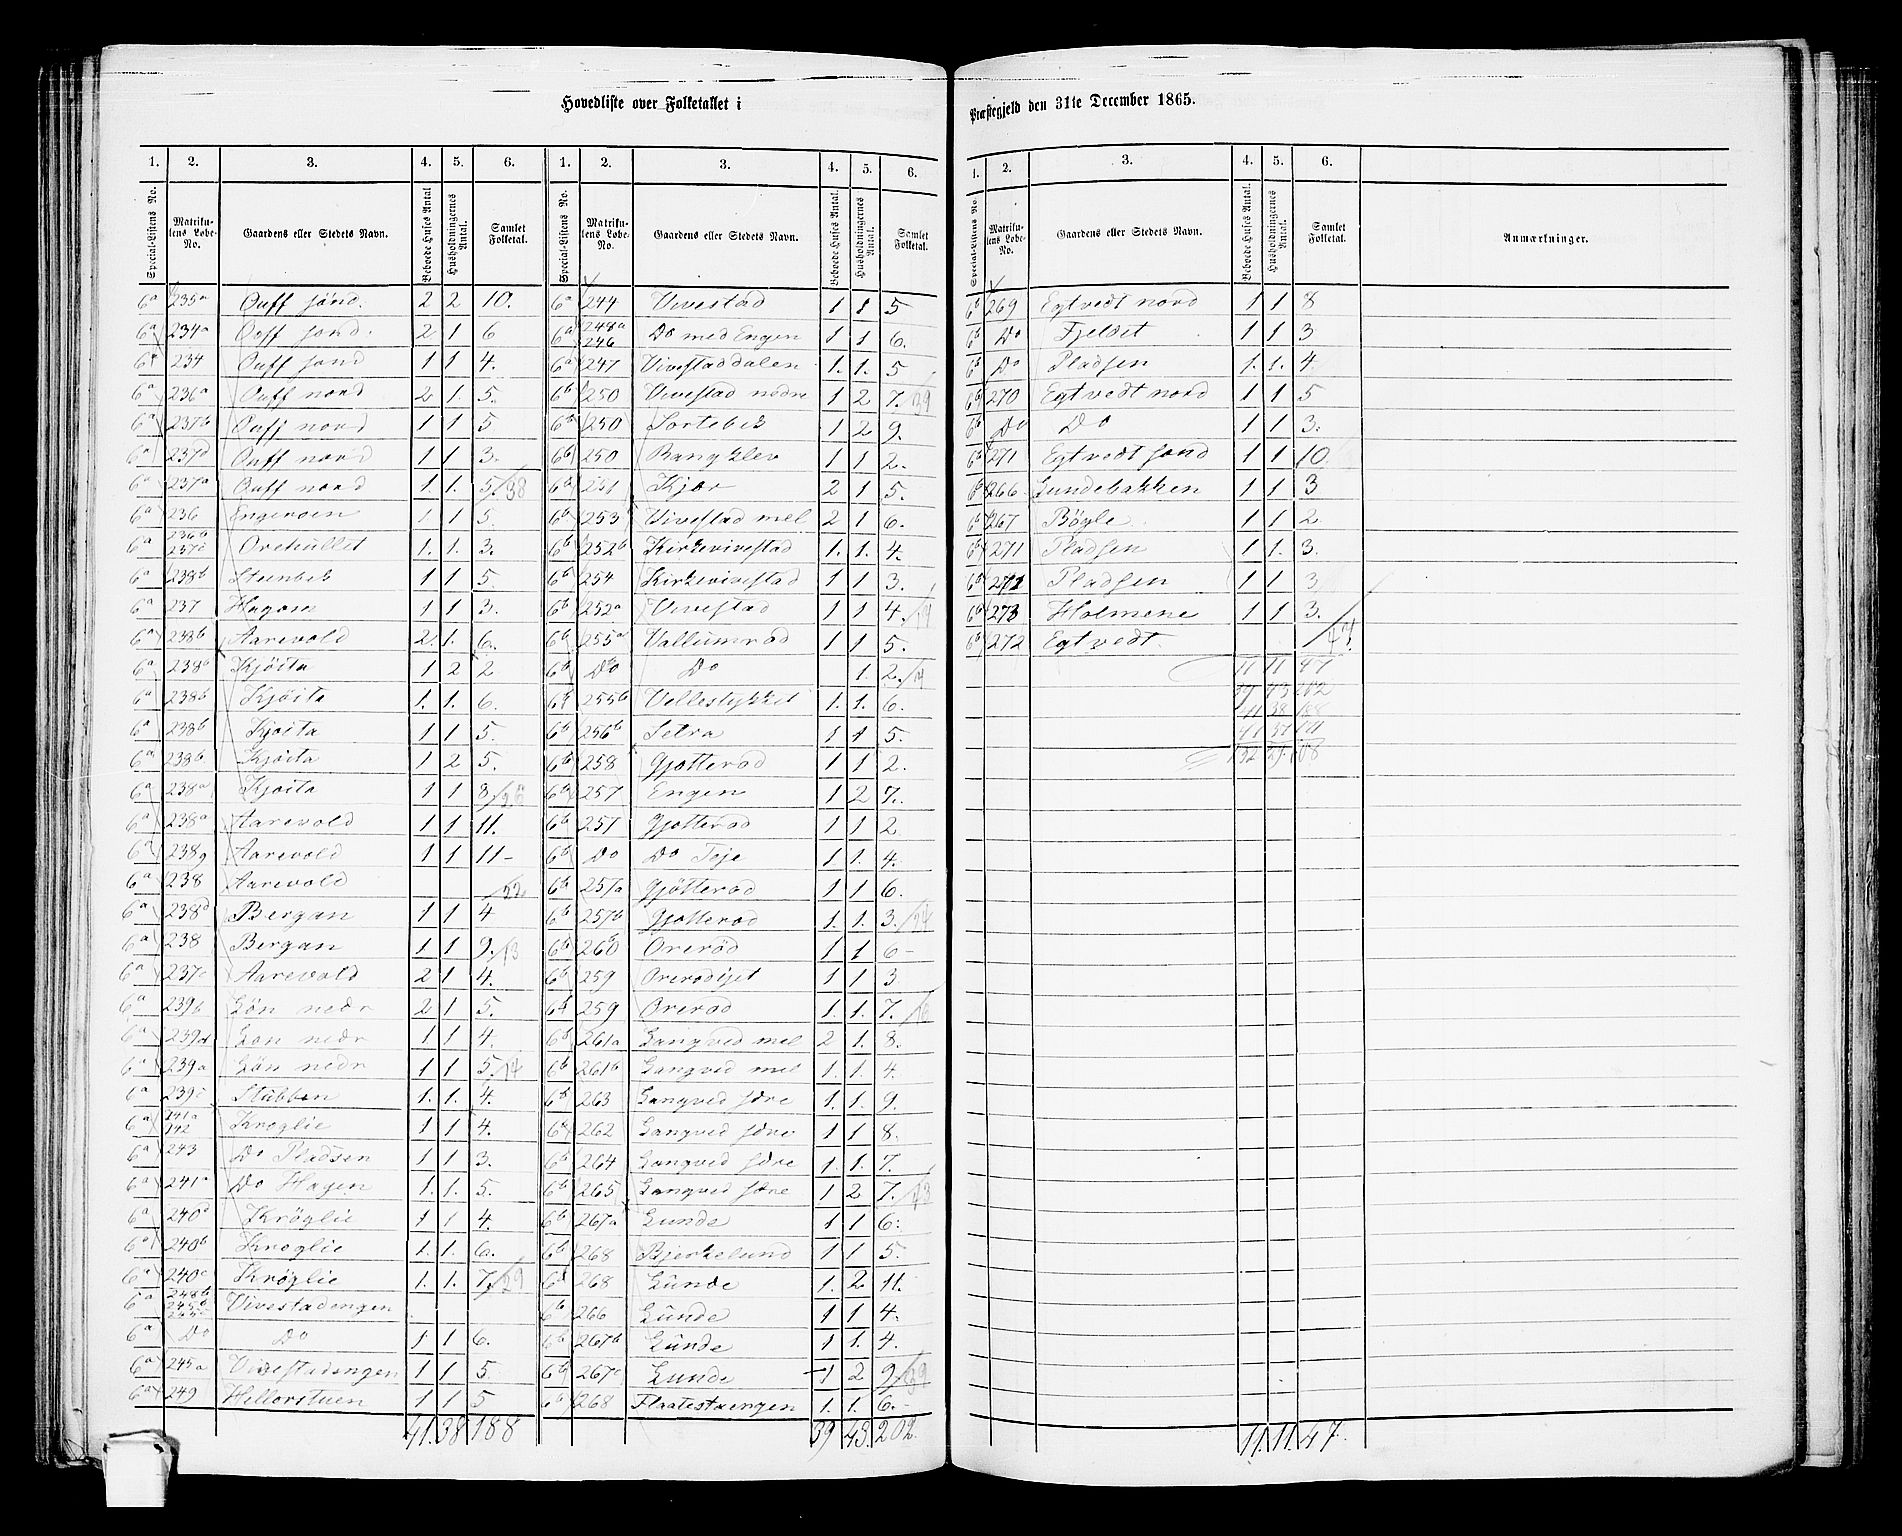 Hovedliste over Folketallet i
1. 2. 3. 4. 5. 6. 1. 2. 3. 4. 5. 6.
Special-Listens No. Matrikulens Løbe-No. Gaardens eller Stedets Navn. Beboede Huses Antal. Husholdningernes Antal. Samlet Folketal. Special-Listens No. Matrikulens Løbe-No. Gaardens eller Stedets Navn. Beboede Huses Antal. Husholdningernes Antal. Samlet Folketal.
6a 235a Ouff sönd. 2 2 10. 6a 244 Vivestad 1 1 5
6a 234a Ouff sönd. 2 1 6 6a 248a 246 Do med Engen 1 1 6.
6a 234 Ouff sönd 1 1 4. 6a 247 Vivestaddalen 1. 1. 5
6a 236a Ouff nord 2 1. 5. 6b 250 Vivestad nedre 1 2 7. /39
6a 237b Ouff nord 1 1 5 6b 250 Sortebek 1 2 9.
6a 237d Ouff nord 1 1 3. 6b 250 Rangklev 1 1 2.
6a 237a Ouff nord 1 1. 5. /38 6b 251 Kjær 2 1 5.
6a 236 Engeroen 1 1 5. 6b 253 Vivestad mel 2 1 6.
6a 236b 237c Orehullet 1. 1. 3. 6b 252b Kirkevivestad 1. 1. 4.
6a 238b Steenbek 1 1 5. 6b 254 Kirkevivestad 1 1 3.
6a 237 Hagom 1 1 3. 6b 252a Vivestad 1 1 4. /19
6a 238b Aarevold 2. 1. 6. 6b 255a Vallumrød 1 1 5.
6a 238b Kjöita 1 2 2 6b Do Do 1. 2. /14
6a 238b Kjöita 1. 1. 6. 6b 255b Vellestykket 1. 1. 6.
6a 238b Kjöita 1 1 5. 6b 256b Setra 1 1 5.
6a 238b Kjöita 1 2 5. 6b 258 Gjötteröd 1 1 2.
6a 238a Kjöita 1 1 8 /26 6b 257 Engen 1 2 7.
6a 238a Aarevold 1 1 11. 6b 257 Gjötteröd 1 1 2
6a 238g Aarevold 1 1 11 - 6b Do Do Teje 1 1. 4.
6a 238 Aarevold /22 6b 257a Gjötteröd 1 1 6.
6a 238d Bergan 1 1 4 6b 257b Gjötteröd 1. 1. 3. /24
6a 238 Bergan 1 1 9. /13 6b 260 Oreröd 1 1 6 -
6a 237c Aarevold 2 1 4. 6b 259 Orerödiget 1 1 3
6a 239b Løn nedr 2 1 5. 6b 259 Oreröd 1. 1. 7. /16
6a 239d Løn nedr 1 1 4. 6b 261a Langved mel 2 1. 8.
6a 239a Løn nedr 1 1 5. /14 6b 261b Langved mel 1. 1. 4.
6a 239c Stubben 1. 1. 4. 6b 263 Langved søre 1. 1. 9.
6a 141a 142 Kroglie 1 1 4. 6b 262 Langved søre 1 1 8.
6a 243 Do Pladsen 1 1 3. 6b 264 Langved søre 1. 1. 7.
6a 241a Do Hagen 1. 1. 5. 6b 265 Langved søre 1 2 7. /43
6a 240d Kröglie 1 1 4. 6b 267a Lunde 1 1 6.
6a 240b Kroglie 1. 1. 6. 6b 268 Bjerkelund 1 1 5.
6a 240c Kröglie 1. 1. 7. /29 6b 268 Lunde 1. 2 11.
6a 248b 245b 245c Vivestadengen 6b 266 Lunde 1 1 4.
6a Do Do 1 1 6. 6b 267b Lunde 1 1. 4.
6a 245a Vivestadengen 1 1 5. 6b 267c Lunde 1 2 9 /39
6a 249 Hellorstuen 1 1 5 6b 268 Flaatestuengen 1. 1. 6. -
41. 38 188 39 43. 202.
Præstegjeld den 31te December 1865.
1. 2. 3. 4. 5. 6.
Special-Listens No. Matrikulens Løbe-No. Gaardens eller Stedets Navn. Beboede Huses Antal. Husholdningernes Antal. Samlet Folketal. Anmærkninger.
6b 269 Egtvedt nord 1 1 8
6b Do Fjeldet 1 1 3
6b Do Pladsen 1. 1. 4.
6b 270 Egtvedt nord 1 1 5
6b Do Do 1 1 3.
6b 271 Egtvedt sønd 1 1 10
6b 266 Lundebakken 1 1 3
6b 267 Bögle. 1 1 2
6b 271 Pladsen 1 1. 3.
6b 271 Pladsen 1 1 3
6b 273 Holmene 1 1 3.
6b 272 Egtvedt.
11 11 47
39 43 202
41 38 188
11. 11. 47.